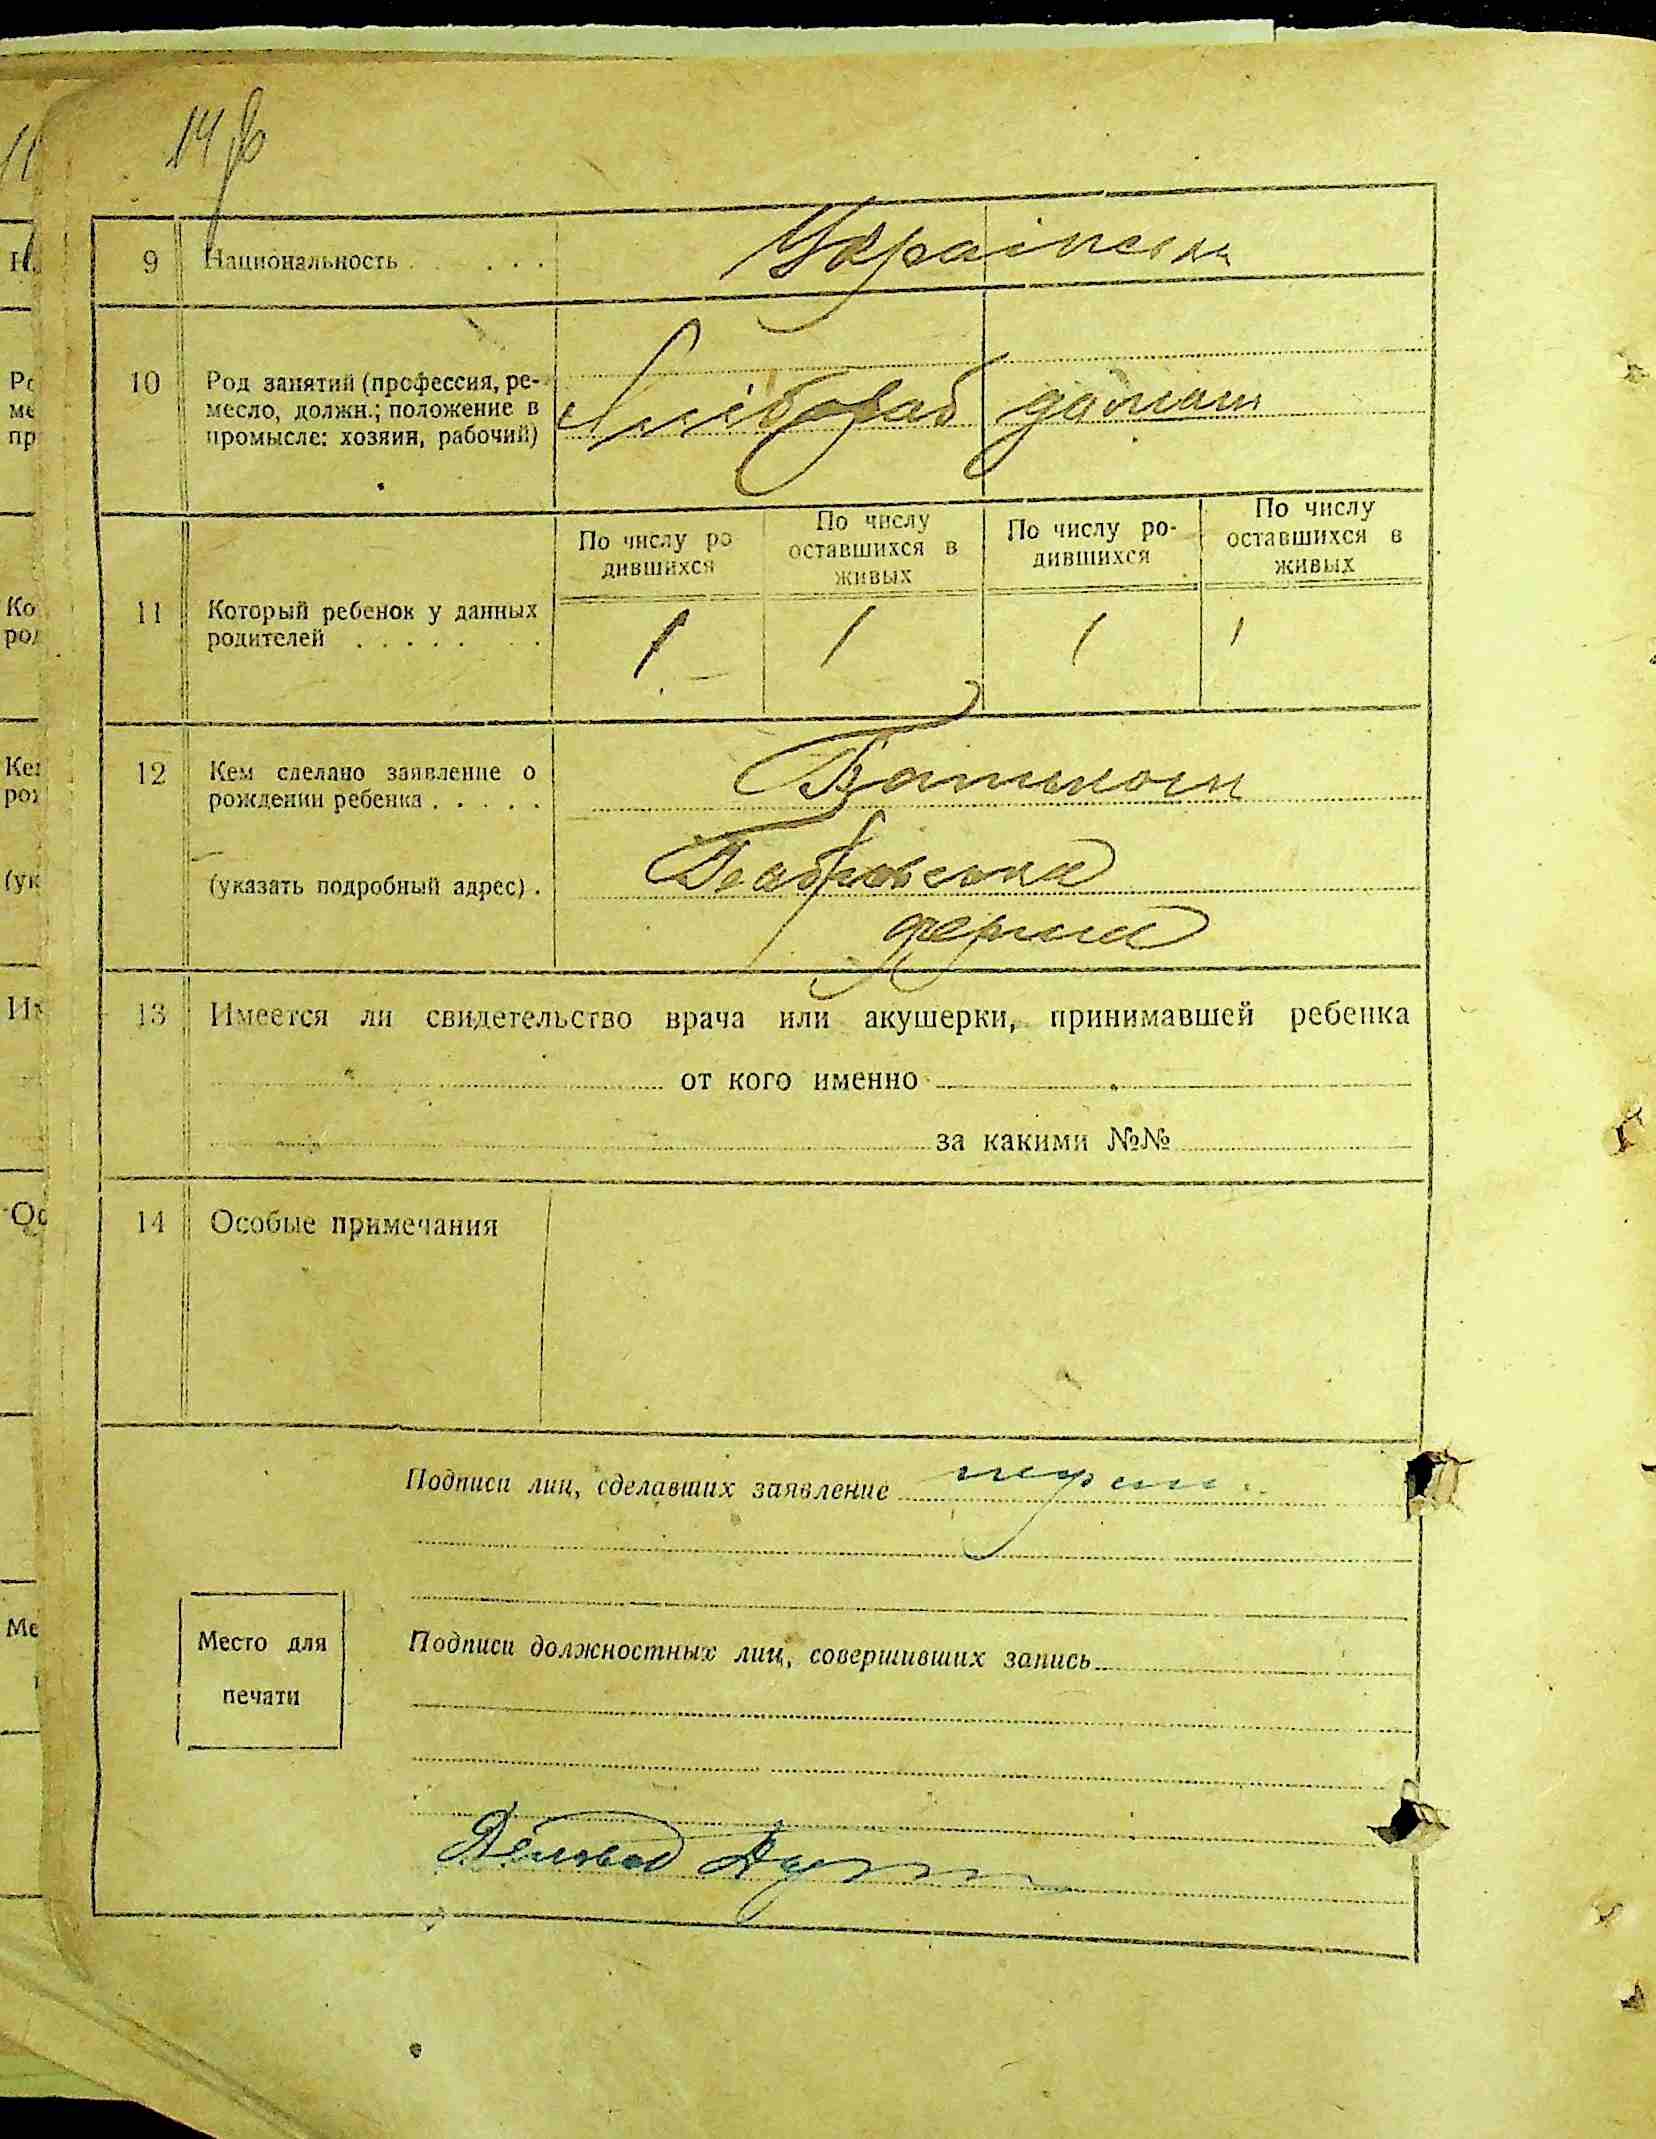 14
9 Национальность . . . . . . Українська
10 Род занятий (профессия, ре-
месло, должн.; положение в
промысле: хозяин, рабочий)
Хлібороб домаш
11 Который ребенок у данных
родителей . . . . . . .
По числу ро
дившихся
По числу
оставшихся в
живых
По числу ро-
дившихся
По числу
оставшихся в
живых
1 1 1 1
12 Кем сделано заявление о
рождении ребенка . . . . .
Батьком
(указать подробный адрес) .
ферми
13 Имеется ли свидетельство врача или акушерки, принимавшей ребенка
от кого именно
за какими №№
14 Особые примечания
Подписи лиц, сделавших заявление
Место для
печати
Подписи должностных лиц, совершивших запись
Деловод